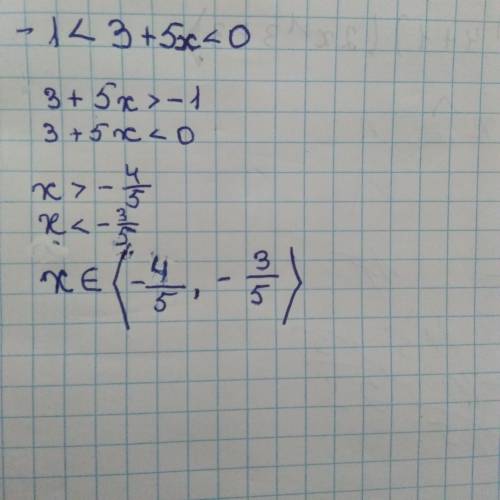 -1 < 3 + 5x < 0
3 + 5x > -1
3 + 5x < 0
x > - 4/5
x < - 3/5
x ∈ ⟨- 4/5, - 3/5⟩